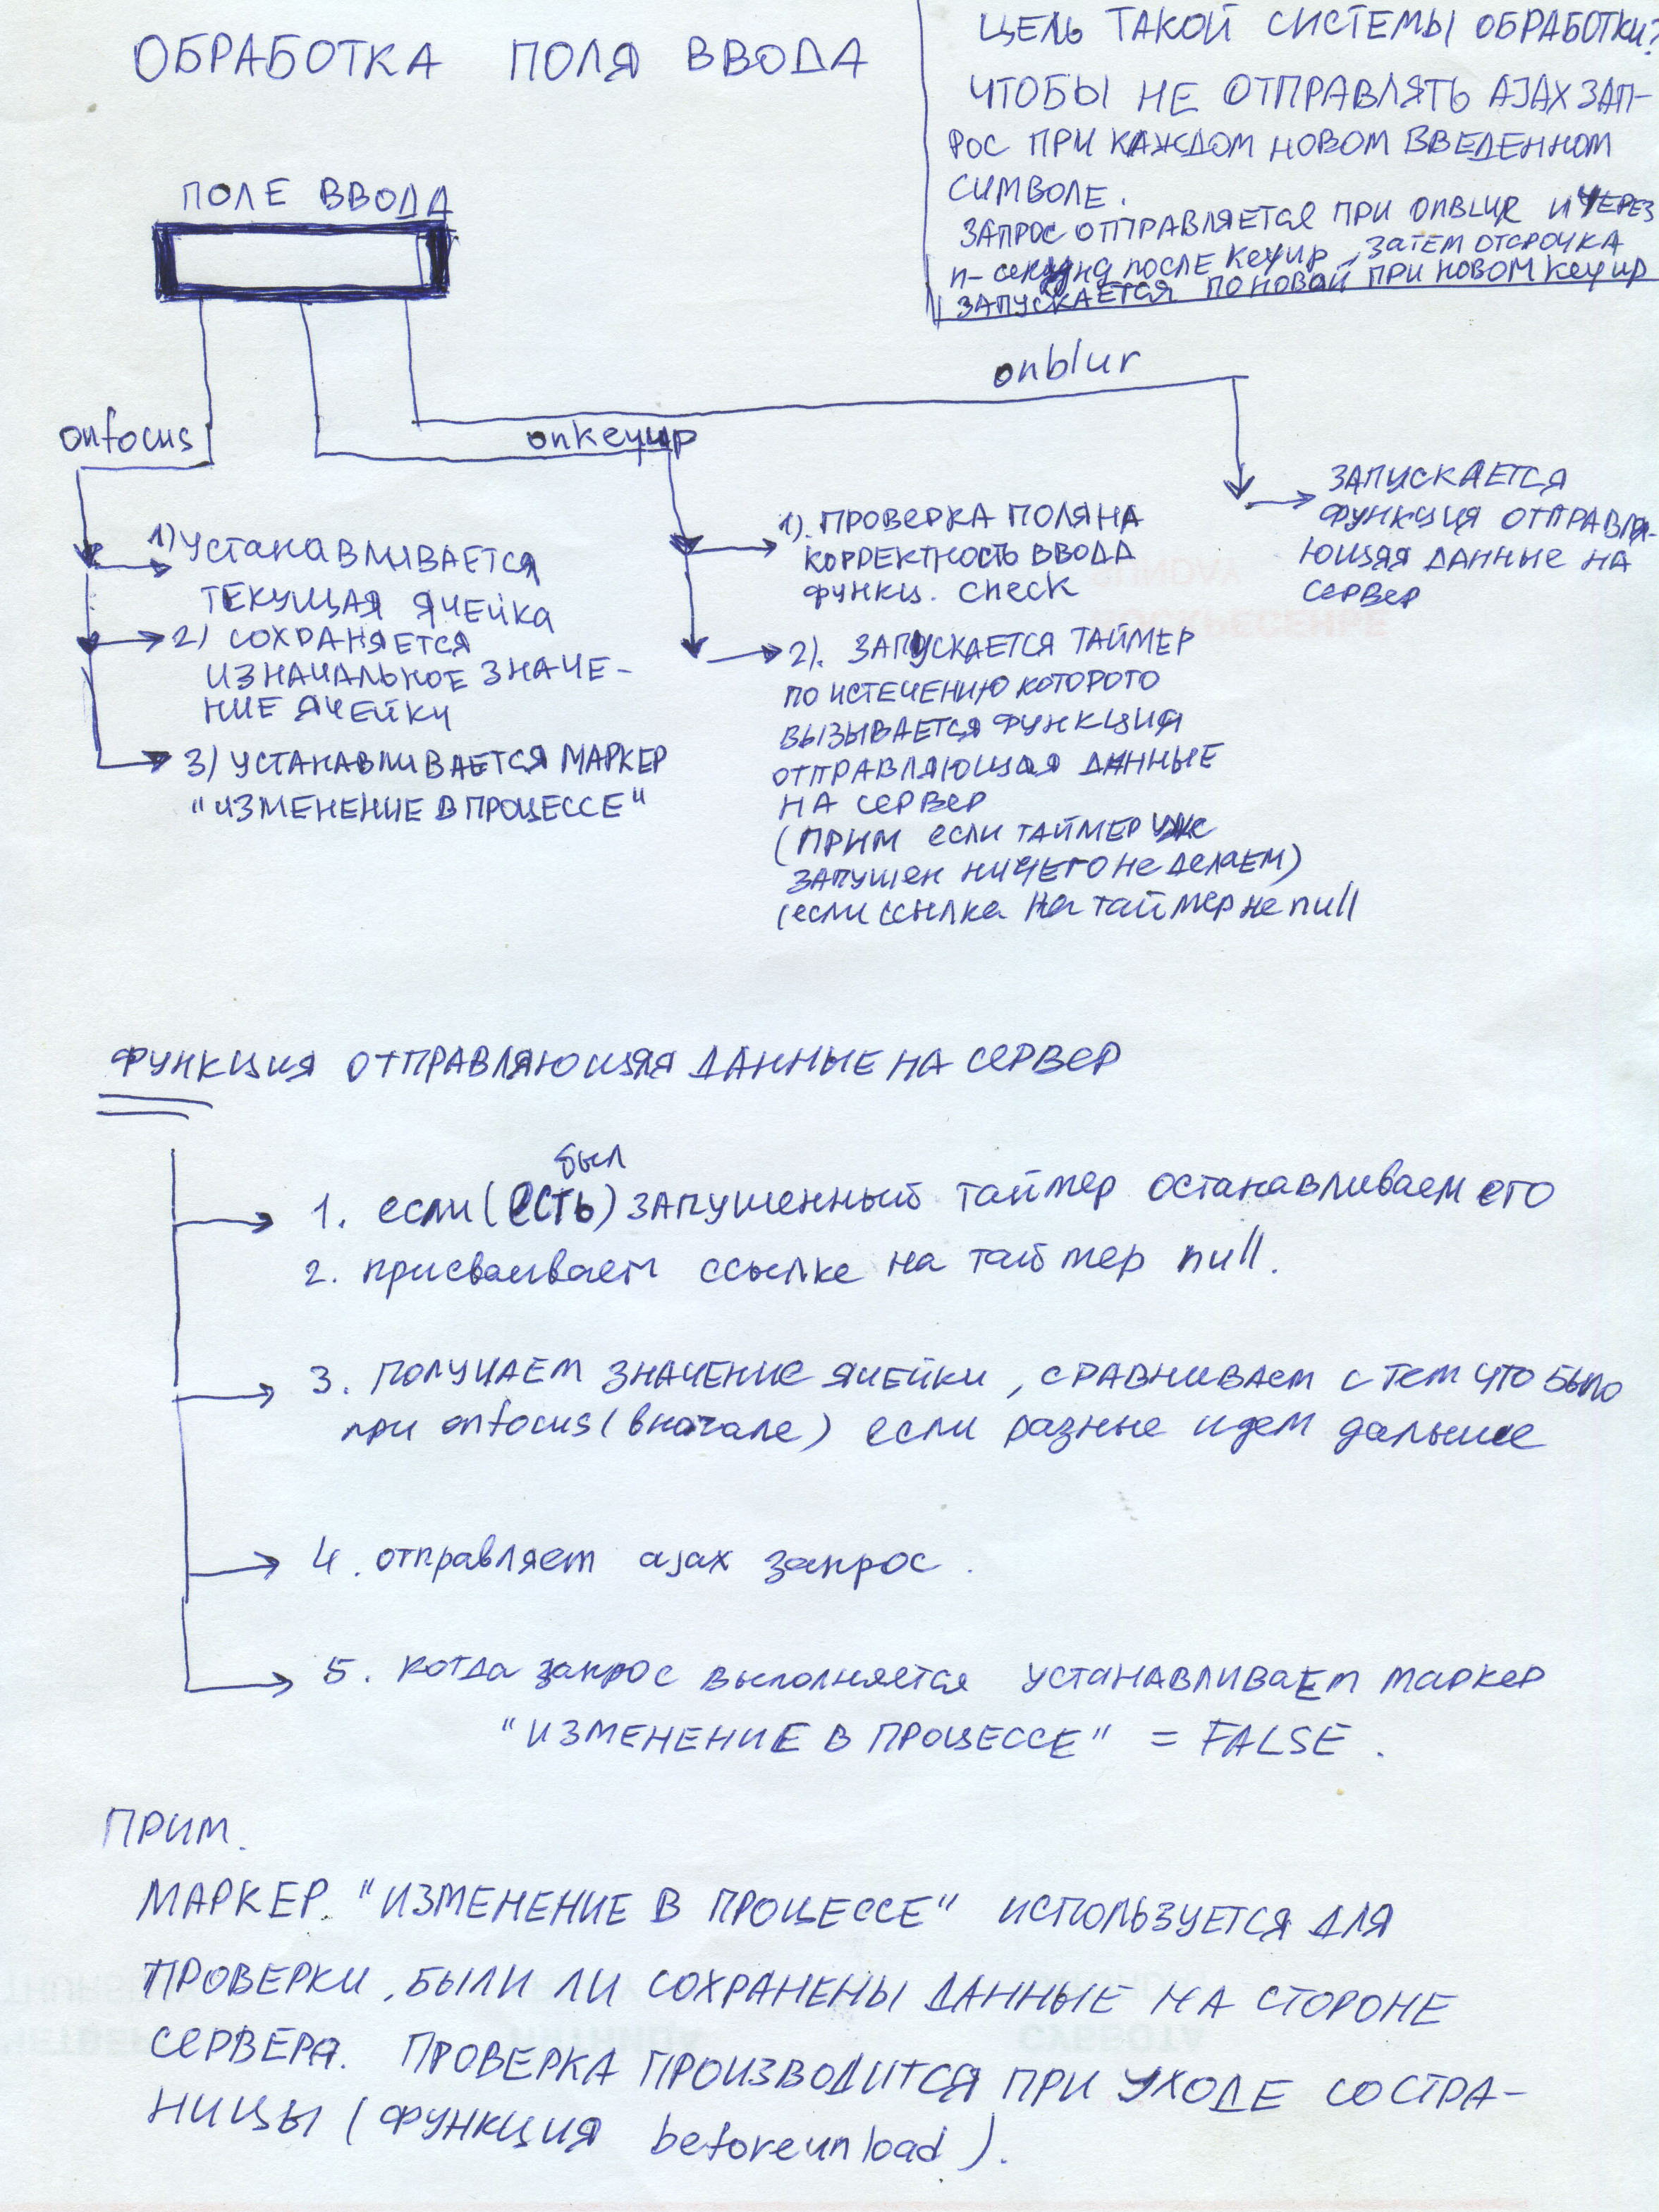 ОБРАБОТКА ПОЛЯ ВВОДА
ЦЕЛЬ ТАКОЙ СИСТЕМЫ ОБРАБОТКИ?
ЧТОБЫ НЕ ОТПРАВЛЯТЬ AJAX ЗАП-
РОС ПРИ КАЖДОМ НОВОМ ВВЕДЕННОМ
СИМВОЛЕ.
ЗАПРОС ОТПРАВЛЯЕТСЯ ПРИ ONBLUR И ЧЕРЕЗ
n-секунд после keyup, ЗАТЕМ ОТСРОЧКА
ЗАПУСКАЕТСЯ ПО НОВОЙ ПРИ НОВОМ keyup
ПОЛЕ ВВОДА
onblur
onfocus
onkeyup
1) УСТАНАВЛИВАЕТСЯ
ТЕКУЩАЯ ЯЧЕЙКА
2) СОХРАНЯЕТСЯ
ИЗНАЧАЛЬНОЕ ЗНАЧЕ-
НИЕ ЯЧЕЙКИ
3) УСТАНАВЛИВАЕТСЯ МАРКЕР
"ИЗМЕНЕНИЕ В ПРОЦЕССЕ"
1). ПРОВЕРКА ПОЛЯ НА
КОРРЕКТНОСТЬ ВВОДА
функц. check
2). ЗАПУСКАЕТСЯ ТАЙМЕР
ПО ИСТЕЧЕНИЮ КОТОРОГО
ВЫЗЫВАЕТСЯ ФУНКЦИЯ
ОТПРАВЛЯЮЩАЯ ДАННЫЕ
НА СЕРВЕР
(ПРИМ если ТАЙМЕР уже
ЗАПУЩЕН НИЧЕГО не делаем)
(если ссылка на таймер не null
ЗАПУСКАЕТСЯ
ФУНКЦИЯ ОТПРАВЛЯ-
ЮЩАЯ ДАННЫЕ НА
СЕРВЕР
ФУНКЦИЯ ОТПРАВЛЯЮЩАЯ ДАННЫЕ НА СЕРВЕР
был
1. если (есть) запущенный таймер останавливаем его
2. присваиваем ссылке на таймер null.
3. ПОЛУЧАЕМ ЗНАЧЕНИЕ ЯЧЕЙКИ, СРАВНИВАЕМ с тем что было
при onfocus (вначале) если разные идем дальше
4. отправляет ajax запрос.
5. когда запрос выполняется УСТАНАВЛИВАЕТ маркер
"ИЗМЕНЕНИЕ В ПРОЦЕССЕ" = FALSE.
ПРИМ.
МАРКЕР "ИЗМЕНЕНИЕ В ПРОЦЕССЕ" ИСПОЛЬЗУЕТСЯ ДЛЯ
ПРОВЕРКИ, БЫЛИ ЛИ СОХРАНЕНЫ ДАННЫЕ НА СТОРОНЕ
СЕРВЕРА. ПРОВЕРКА ПРОИЗВОДИТСЯ ПРИ УХОДЕ СО СТРА-
НИЦЫ (ФУНКЦИЯ beforeunload).